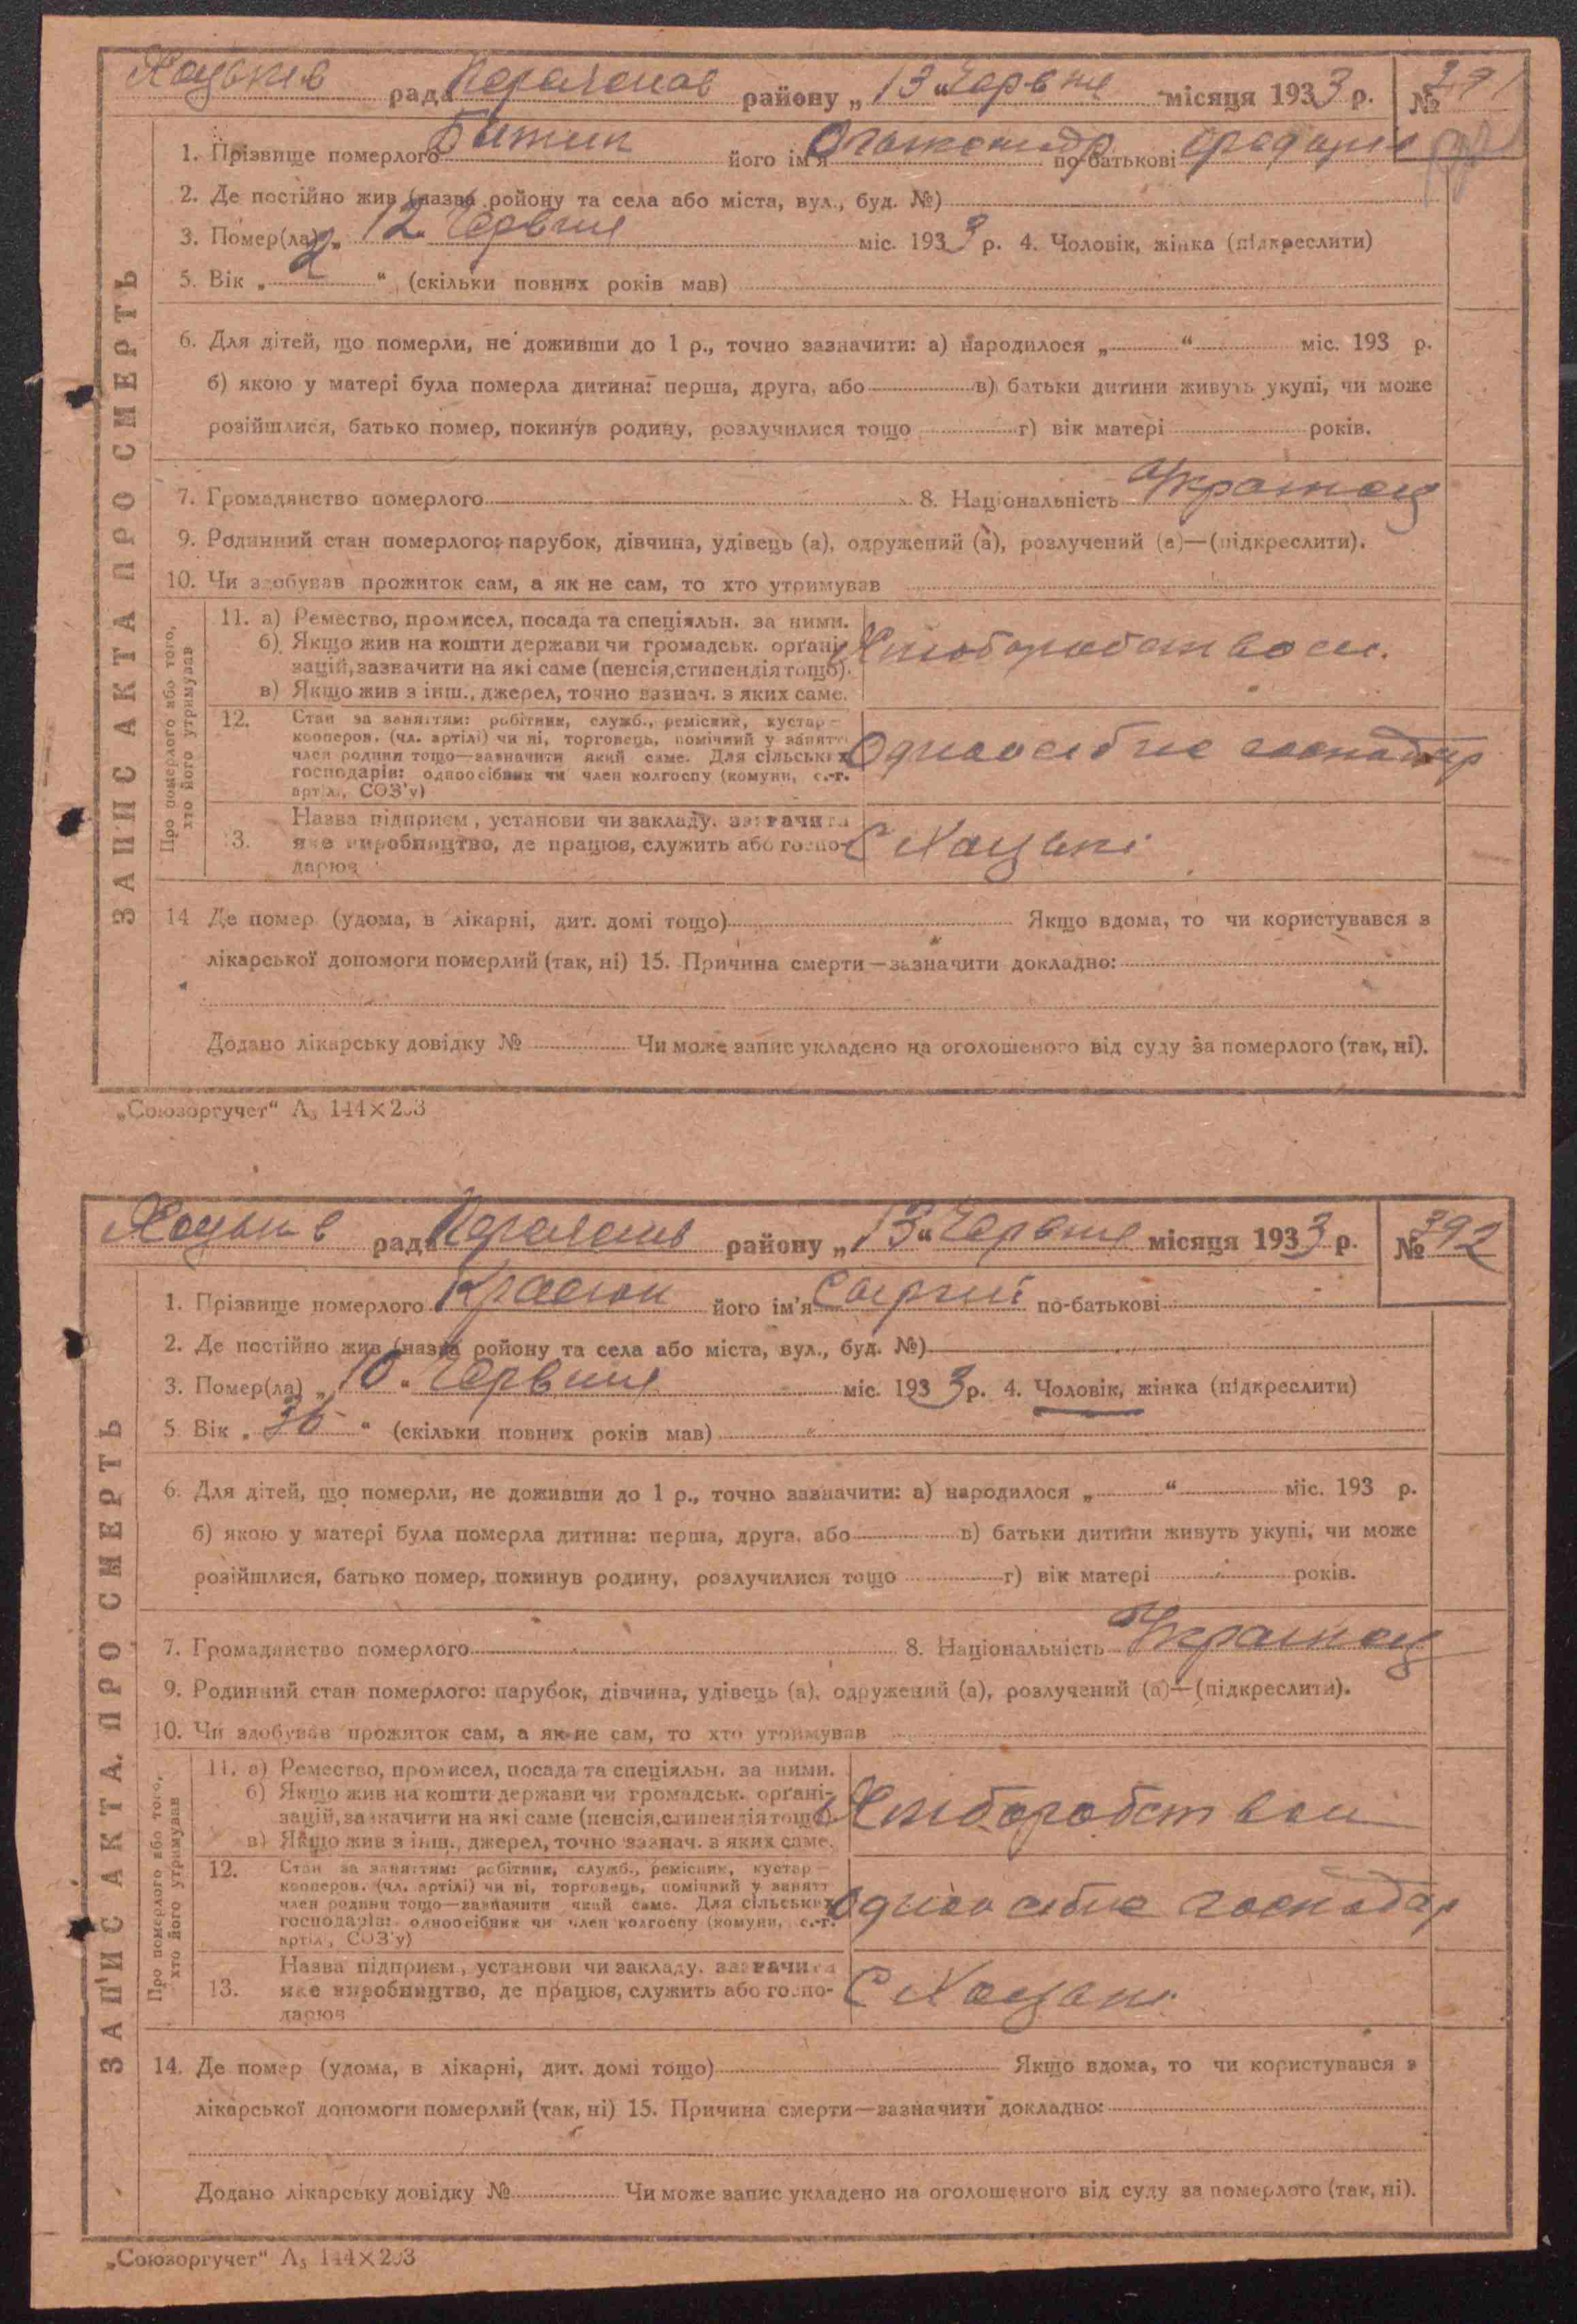 рада району „13“ Червня місяця 1933 р. №
1. Прізвище померлого його ім'я Олександр по-батькові
2. Де постійно жив (назва ройону та села або міста, вул., буд. №)
3. Помер(ла) „12 Червня міс. 1933 р. 4. Чоловік, жінка (підкреслити)
5. Вік „2“ (скільки повних років мав)
6. Для дітей, що померли, не доживши до 1 р., точно зазначити: а) народилося „ “ міс. 193 р.
б) якою у матері була померла дитина: перша, друга, або в) батьки дитини живуть укупі, чи може
розійшлися, батько помер, покинув родину, розлучилися тощо г) вік матері років.
7. Громадянство померлого 8. Національність Украинец
9. Родинний стан померлого: парубок, дівчина, удівець (а), одружений (а), розлучений (а)—(підкреслити).
10. Чи здобував прожиток сам, а як не сам, то хто утримував
ЗАПИС АКТА ПРО СМЕРТЬ
Про померлого або того, хто його утримував
11. а) Ремество, промисел, посада та спеціяльн. за ними.
б) Якщо жив на кошти держави чи громадськ. органі-
зацій, зазначити на які саме (пенсія, стипендія тощо).
в) Якщо жив з інш., джерел, точно зазнач. з яких саме.
Хлiборобством.
12. Стан за заняттям: робітник, служб., ремісник, кустар—
кооперов. (чл. артілі) чи ні, торговець, помічний у занятт
член родини тощо—зазначити який саме. Для сільських
господарів: одноосібник чи член колгоспу (комуни, с.-г.
артіл., СОЗ'у)
Одноосібне господар
13. Назва підприєм., установи чи закладу, зазначити
яке виробництво, де працює, служить або госпо-
дарює
С Хацьки
14 Де помер (удома, в лікарні, дит. домі тощо) Якщо вдома, то чи користувався з
лікарської допомоги померлий (так, ні) 15. Причина смерти—зазначити докладно:
Додано лікарську довідку № Чи може запис укладено на оголошеного від суду за померлого (так, ні).
„Союзоргучет“ А₅ 144×203
рада району „13“ Червня місяця 1933 р. №392
1. Прізвище померлого його ім'я Сергій по-батькові
2. Де постійно жив (назва ройону та села або міста, вул., буд. №)
3. Помер(ла) „10“ Червня міс. 1933 р. 4. Чоловік, жінка (підкреслити)
5. Вік „ “ (скільки повних років мав)
6. Для дітей, що померли, не доживши до 1 р., точно зазначити: а) народилося „ “ міс. 193 р.
б) якою у матері була померла дитина: перша, друга, або в) батьки дитини живуть укупі, чи може
розійшлися, батько помер, покинув родину, розлучилися тощо г) вік матері років.
7. Громадянство померлого 8. Національність Украинец
9. Родинний стан померлого: парубок, дівчина, удівець (а), одружений (а), розлучений (а)—(підкреслити).
10. Чи здобував прожиток сам, а як не сам, то хто утримував
ЗАПИС АКТА ПРО СМЕРТЬ
Про померлого або того, хто його утримував
11. а) Ремество, промисел, посада та спеціяльн. за ними.
б) Якщо жив на кошти держави чи громадськ. органі-
зацій, зазначити на які саме (пенсія, стипендія тощо).
в) Якщо жив з інш., джерел, точно зазнач. з яких саме.
12. Стан за заняттям: робітник, служб., ремісник, кустар—
кооперов. (чл. артілі) чи ні, торговець, помічний у занятт
член родини тощо—зазначити який саме. Для сільських
господарів: одноосібник чи член колгоспу (комуни, с.-г.
артіл., СОЗ'у)
Одноосібне господар
13. Назва підприєм., установи чи закладу, зазначити
яке виробництво, де працює, служить або госпо-
дарює
С Хацьки
14. Де помер (удома, в лікарні, дит. домі тощо) Якщо вдома, то чи користувався з
лікарської допомоги померлий (так, ні) 15. Причина смерти—зазначити докладно:
Додано лікарську довідку № Чи може запис укладено на оголошеного від суду за померлого (так, ні).
„Союзоргучет“ А₅ 144×203